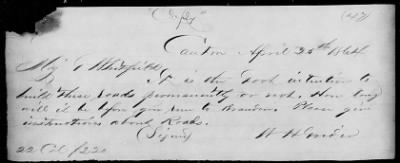 "Copy" (47)
Canton April 25th 1864
Maj G Whitfield
Is it the Govt intention to
built these roads permanently or not. How long
will it be before give over to Brandon. Please give
instructions about Roads.
(Signed) W H
22 Col $2.20